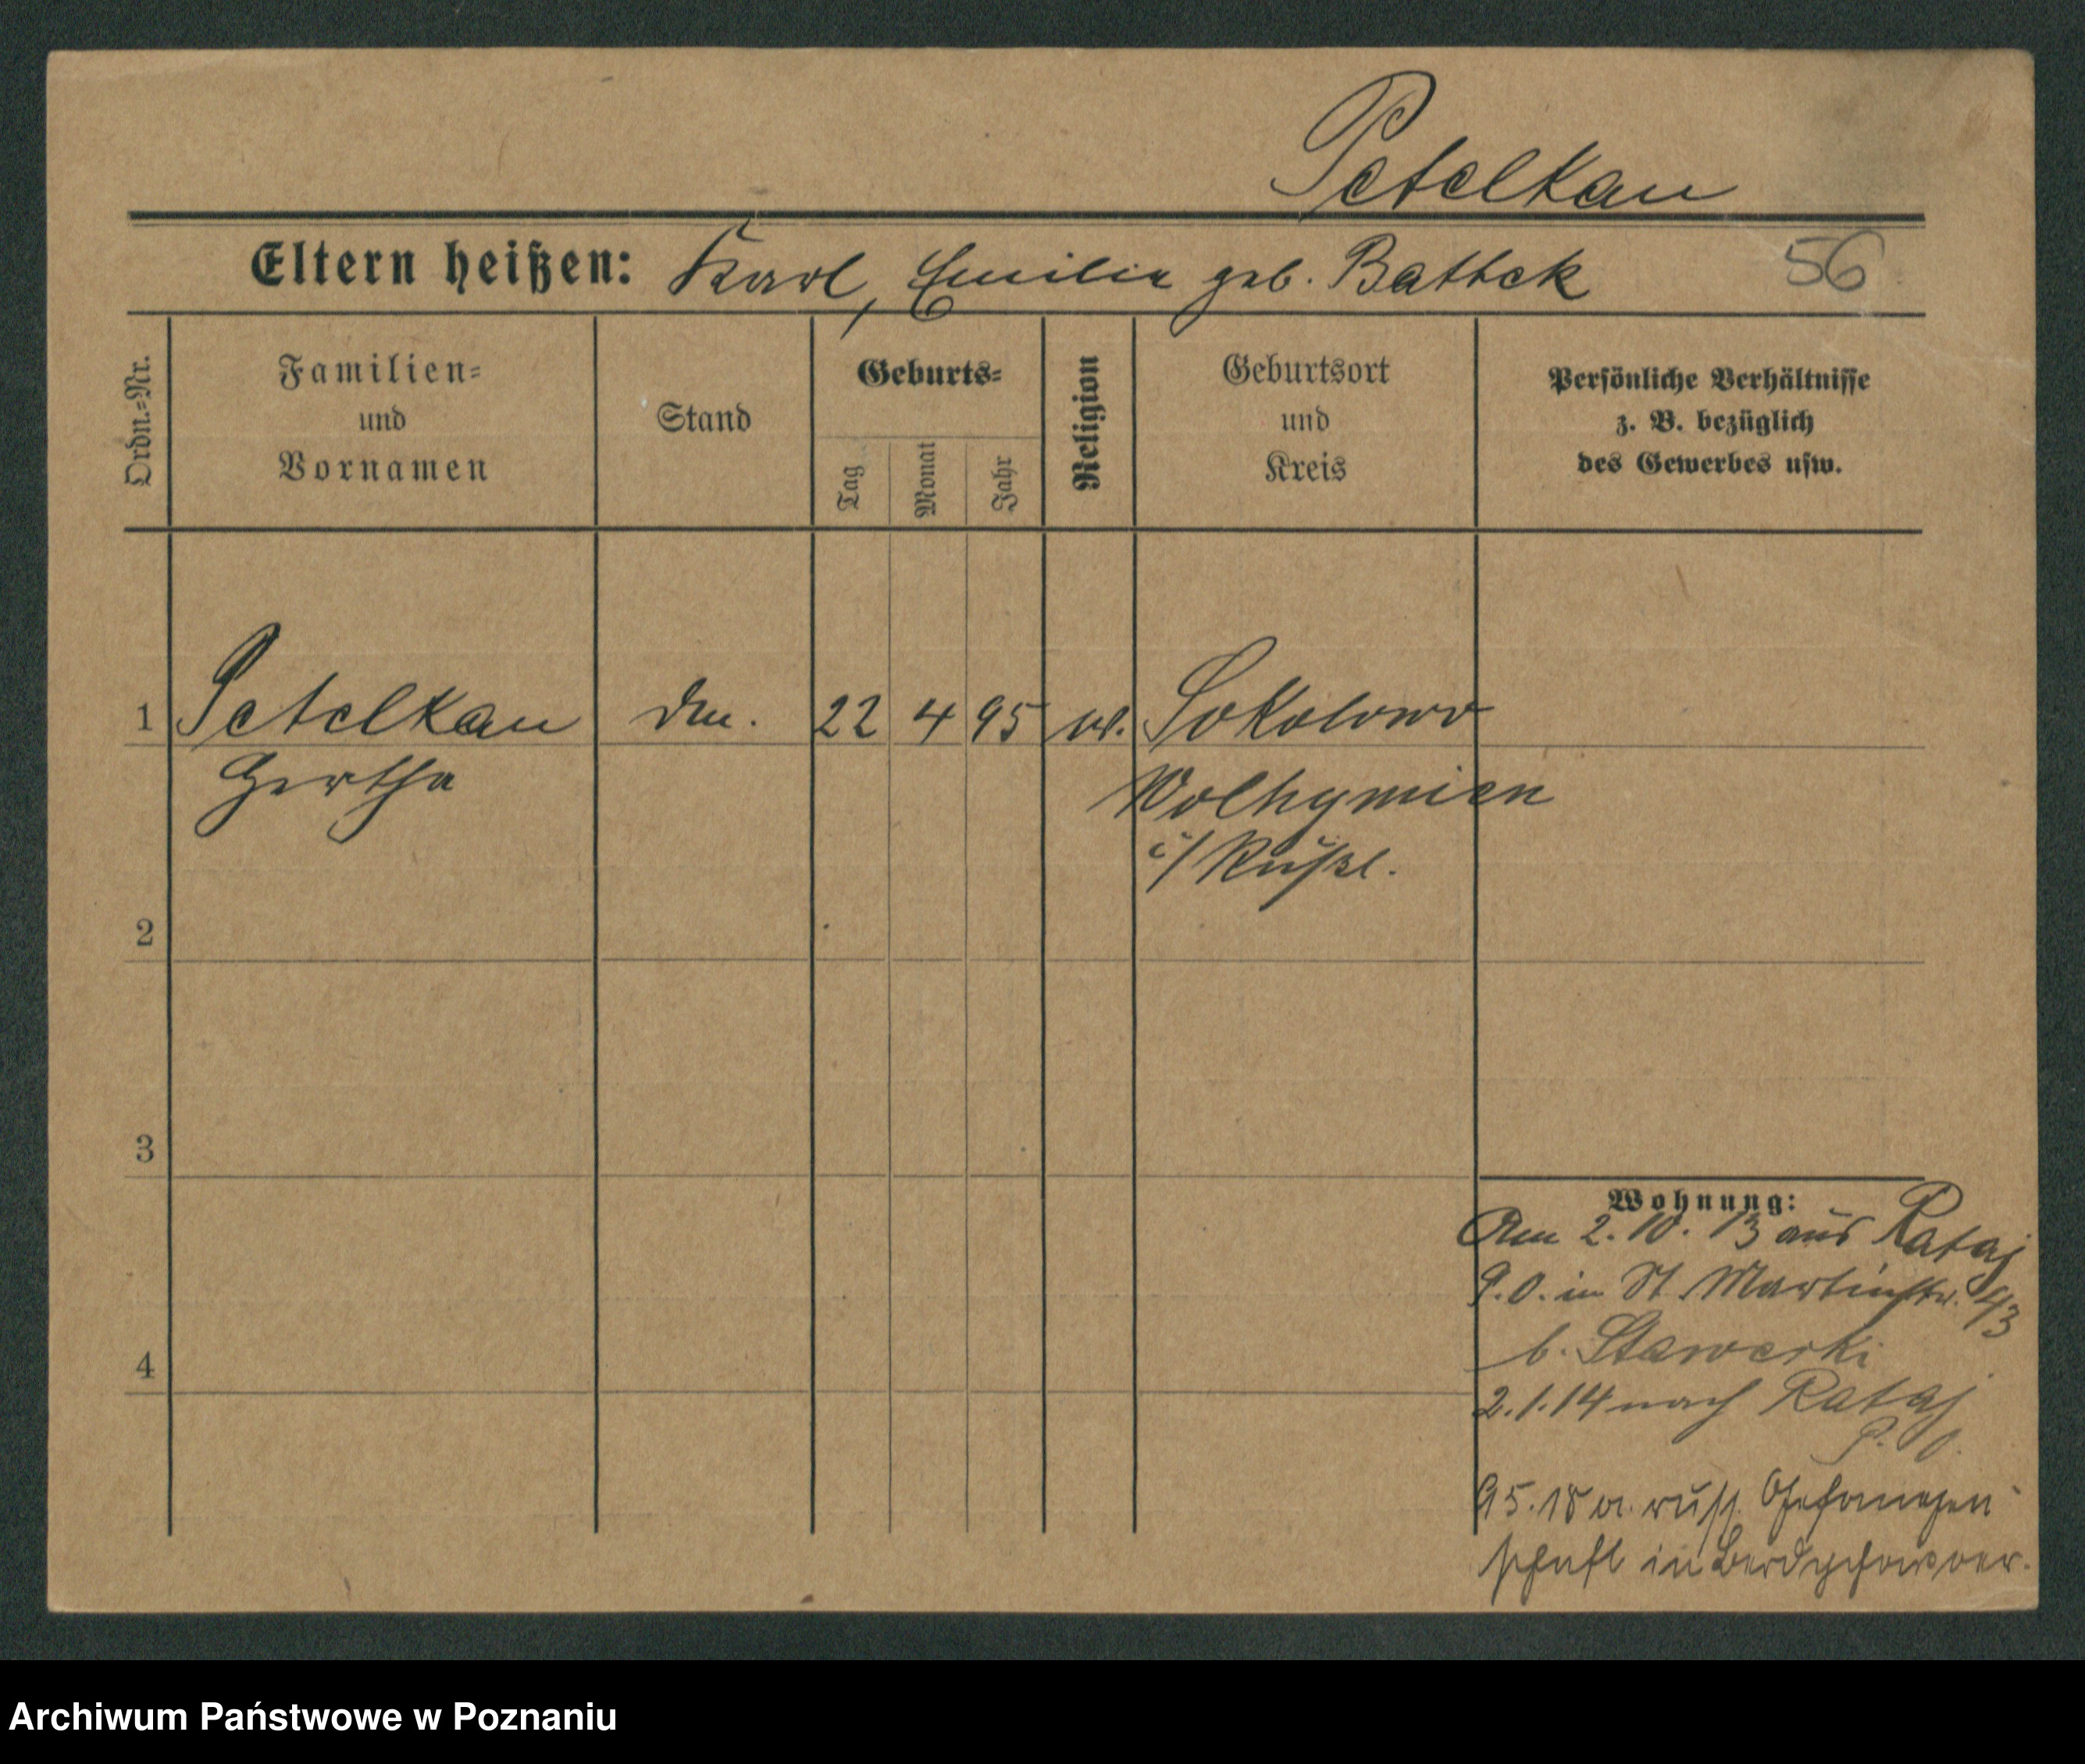 Petelkau
Eltern heißen: Karl, Emilie geb. Battek 56
Ordn.-Nr.
Familien-
und
Vornamen
Stand
Geburts-
Tag
Monat
Jahr
Religion
Geburtsort
und
Kreis
Persönliche Verhältnisse
z. B. bezüglich
des Gewerbes usw.
1 Petelkau 22 4 95 Sokolowo
Hertha
Wolhynien
i/ Rußl.
2
3
4
Wohnung:
Am 2. 10. 13 aus Rataj
P. O. in St Martinstr. 43
b. Stawerki
2. 1. 14 nach Rataj
P. O.
russ. Gefangen
schaft in Berdychow
Archiwum Państwowe w Poznaniu